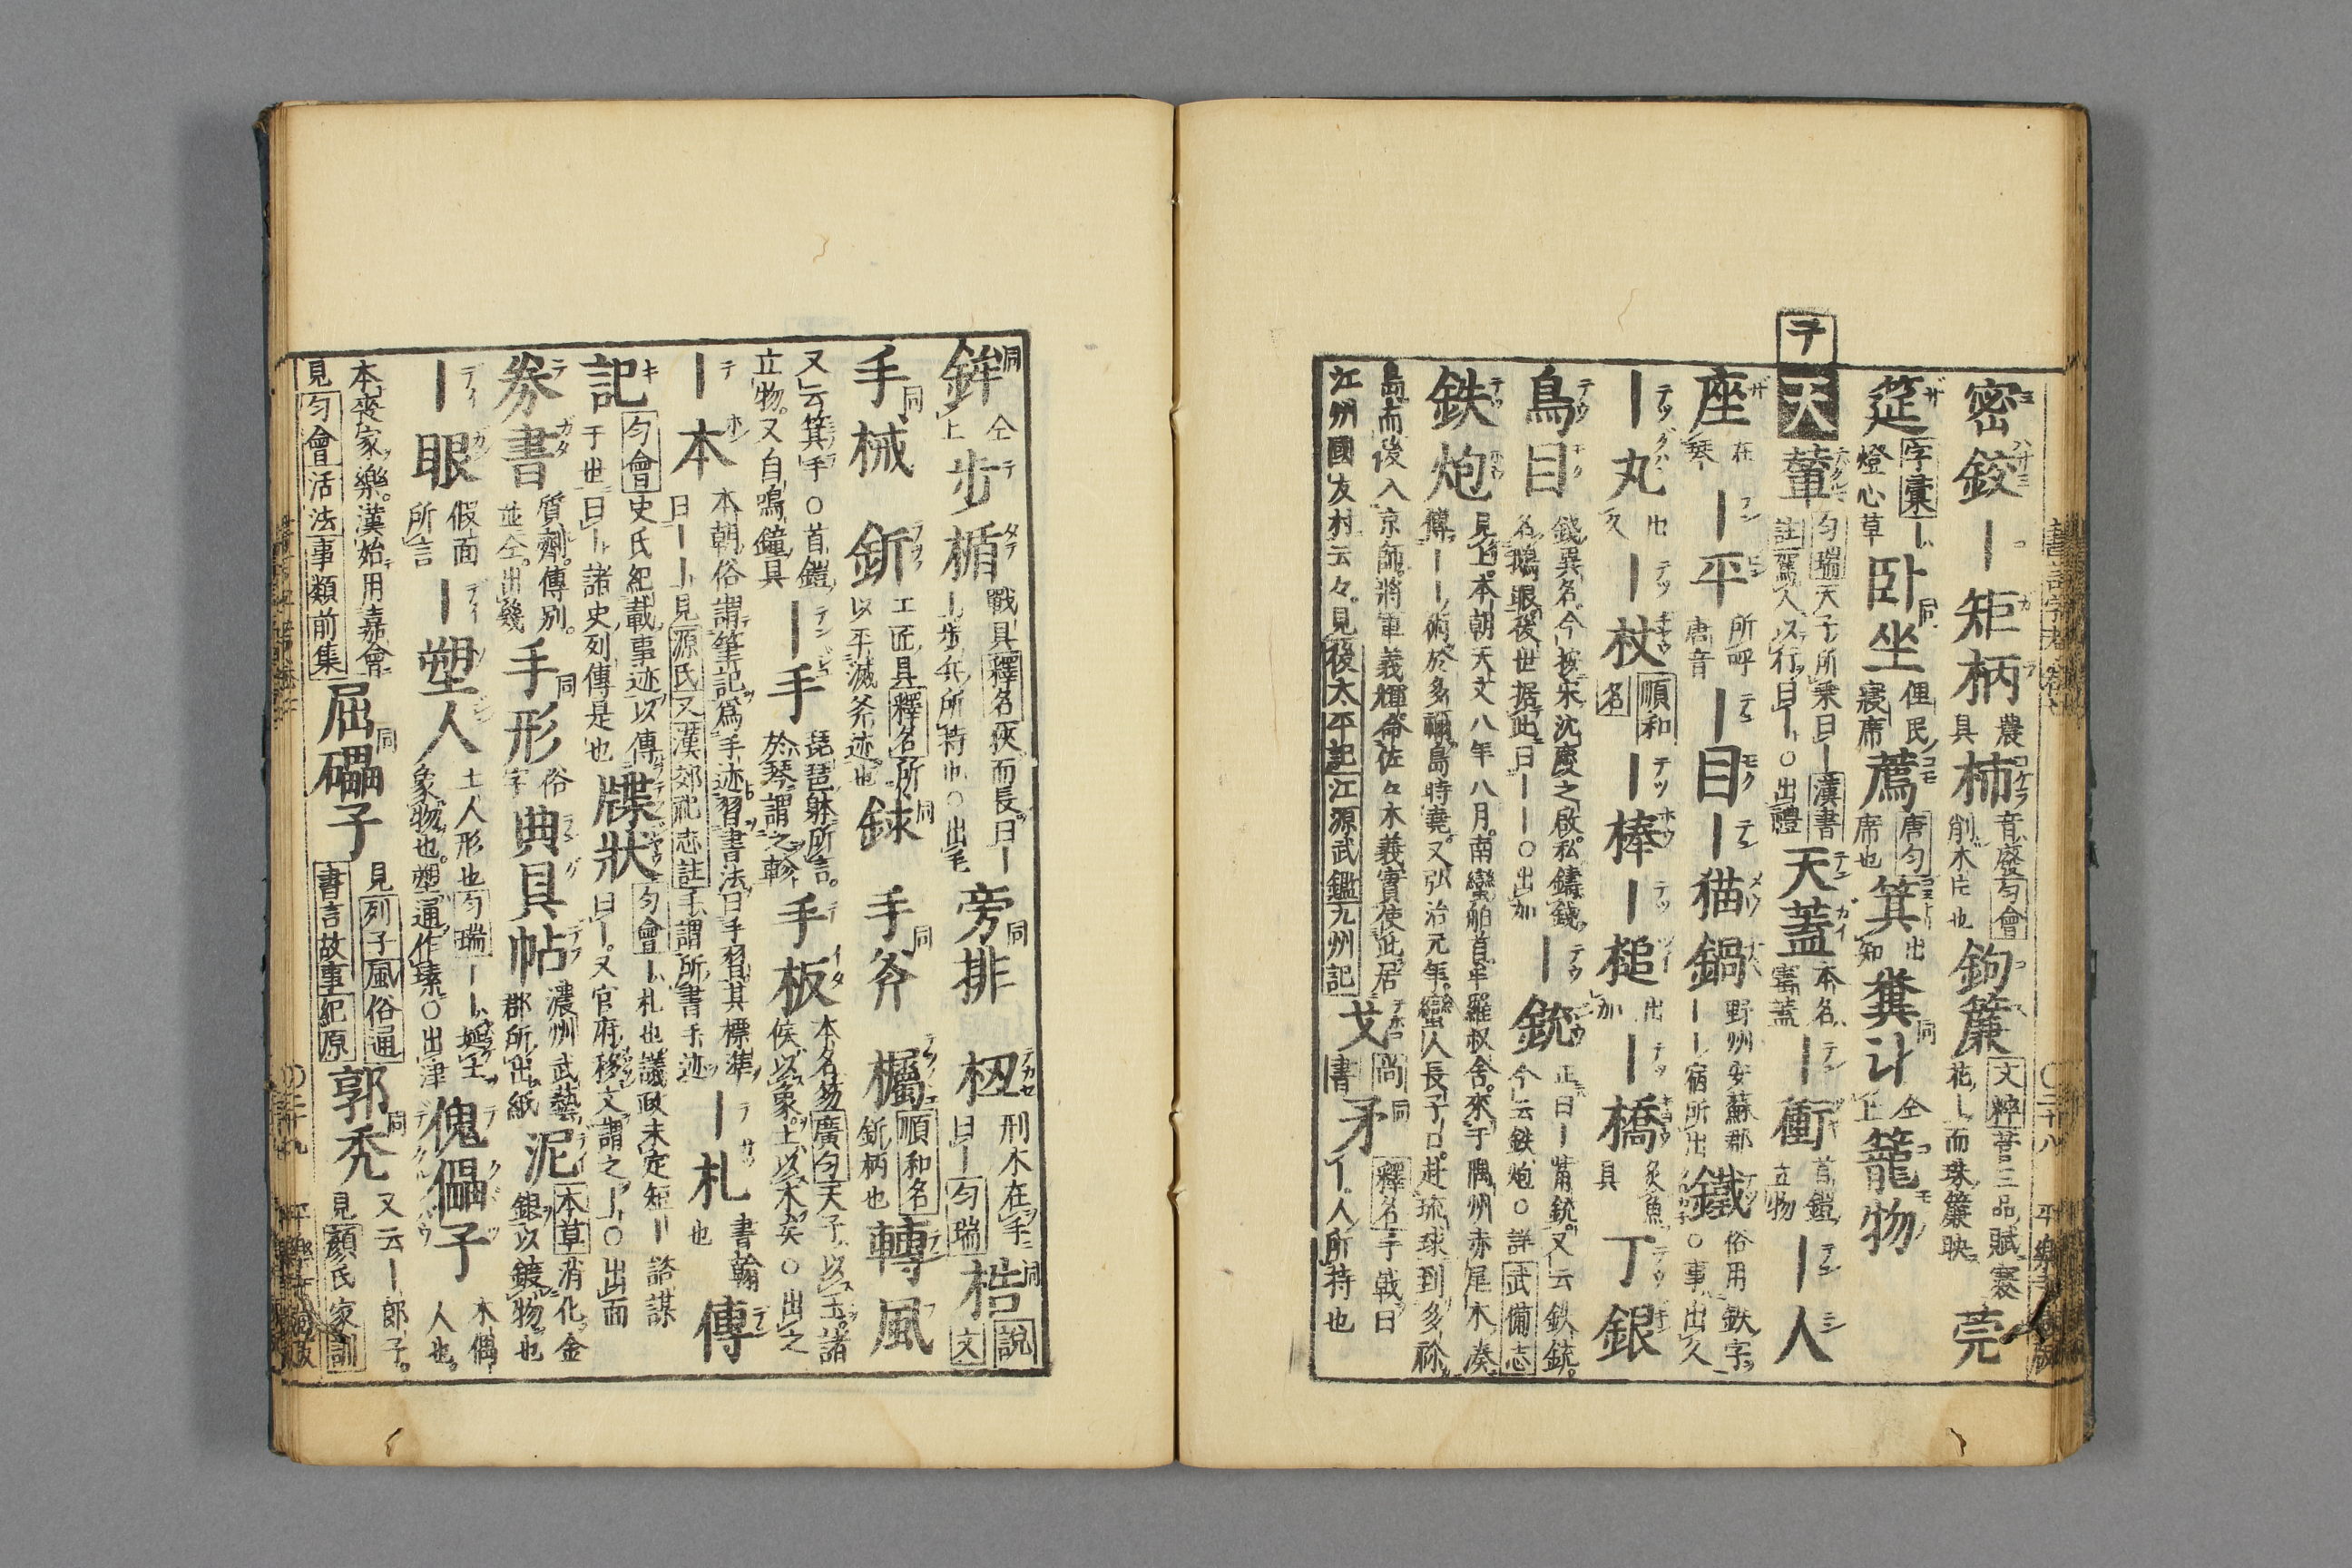 密鉸 ｜矩柄 農具 柿 音廢匀會削木片也 鉤簾 文粹菩三品賦褰花｜而珠簾映 莞
筵 字彙｜燈心草 卧坐 俚民寢席 薦 唐匀席也 箕 出知 糞计 仝上 籠物
テ
天 輦 匀瑞天子所乘曰｜漢書註駕人以行曰｜○出禮 天蓋 本名寶蓋 ｜衝 首鎧立物 ｜人
座 在琴 ｜平 所呼唐音 ｜目｜猫鍋 野州安蘇郡｜｜宿所出 鐵 俗用鉄字○事出久
｜丸 也 ｜杖 順和名 ｜棒｜槌 出加 ｜橋 炙魚具 丁銀
鳥目 錢異名今按宋沈慶之啟私鑄錢名鵝眼後世据此曰｜｜○出加 ｜銃 正曰｜萹銃又云鉄銃今云鉄炮○詳武備志
鉄炮 見上本朝天文八年八月南蠻舶首牟羅叔舍來于隅州赤尾木湊傳｜｜術於多禰島時堯又弘治元年蠻人長子口赴琉球到多祢
島而後入京師將軍義輝命佐々木義實使此居
江州國友村云々見後太平記江源武鑑九州記 戈 尚書 矛 釋名手戟曰｜人所持也
鉾 仝上 步楯 戰具釋名狹而長曰｜｜步兵所持也○出毛 旁排 杻 刑木在手曰｜匀瑞 梏 說文
手械 釿 工匠具釋名所以平滅斧迹也 銶 手斧 欘 順和名釿柄也 轉風
又云箕手○首鎧立物又自鳴鐘具 ｜手 琵琶躰所言於琴謂之軫 手板 本名笏廣匀天子以玉諸候以象上以木矣○出之
｜本 本朝俗謂筆記爲手迹習書法曰手習其標準曰｜｜見源氏又漢郊祀志註手謂所書手迹 ｜札 書翰也 傳
記 匀會史氏紀載事迹以傳于世曰｜諸史列傳是也 牒狀 匀會｜札也議政未定短｜諮謀曰｜又官府移文謂之｜○出而
券書 質劑傳別並仝出幾 手形 俗字 典具帖 濃州武藝郡所出紙 泥 本草消化金銀以鍍物也
｜眼 假面所言 ｜塑人 土人形也匀瑞｜｜埏土象物也塑通作塐○出津 傀儡子 木偶人也
本喪家樂漢始用嘉會
見匀會活法事類前集 屈礧子 見列子風俗通書言故事紀原 郭禿 又云｜郎子見顏氏家訓